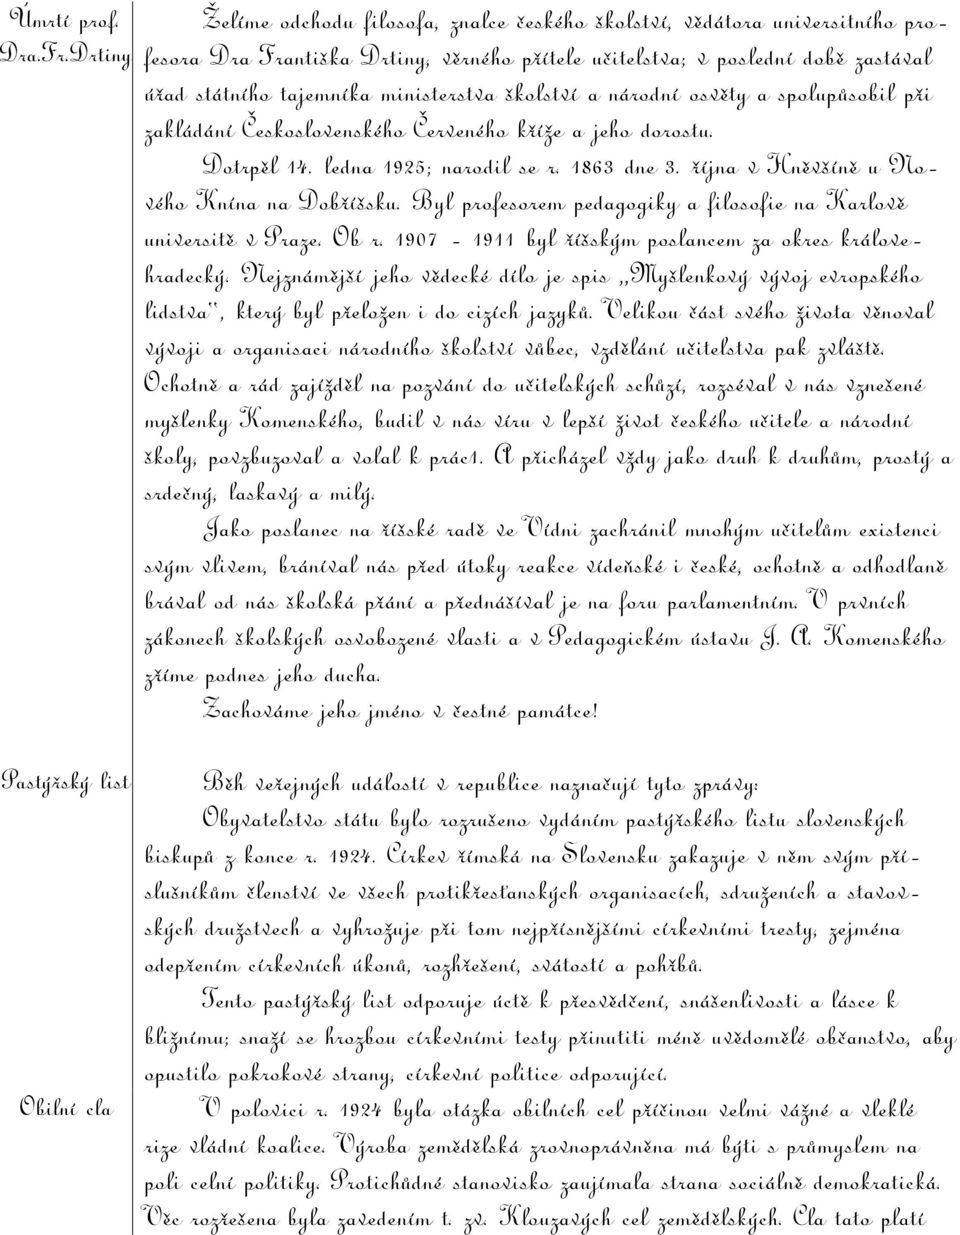 Úmrtí prof.
Dra.Fr.Drtiny
Želíme odchodu filosofa, znalce českého školství, vědátora universitního pro-
fesora Dra Františka Drtiny, věrného přítele učitelstva; v poslední době zastával
úřad státního tajemníka ministerstva školství a národní osvěty a spolupůsobil při
zakládání Československého Červeného kříže a jeho dorostu.
Dotrpěl 14. ledna 1925; narodil se r. 1863 dne 3. října v Hněvšíně u No-
vého Knína na Dobříšsku. Byl profesorem pedagogiky a filosofie na Karlově
universitě v Praze. Ob r. 1907 - 1911 byl říšským poslancem za okres králove-
hradecký. Nejznámější jeho vědecké dílo je spis „Myšlenkový vývoj evropského
lidstva“, který byl přeložen i do cizích jazyků. Velikou část svého života věnoval
vývoji a organisaci národního školství vůbec, vzdělání učitelstva pak zvláště.
Ochotně a rád zajížděl na pozvání do učitelských schůzí, rozséval v nás vznešené
myšlenky Komenského, budil v nás víru v lepší život českého učitele a národní
školy, povzbuzoval a volal k prác1. A přicházel vždy jako druh k druhům, prostý a
srdečný, laskavý a milý.
Jako poslanec na říšské radě ve Vídni zachránil mnohým učitelům existenci
svým vlivem, bránival nás před útoky reakce vídeňské i české, ochotně a odhodlaně
brával od nás školská přání a přednášíval je na foru parlamentním. V prvních
zákonech školských osvobozené vlasti a v Pedagogickém ústavu J. A. Komenského
zříme podnes jeho ducha.
Zachováme jeho jméno v čestné památce!
Pastýřský list
Běh veřejných událostí v republice naznačují tyto zprávy:
Obyvatelstvo státu bylo rozrušeno vydáním pastýřského listu slovenských
biskupů z konce r. 1924. Církev římská na Slovensku zakazuje v něm svým pří-
slušníkům členství ve všech protikřesťanských organisacích, sdruženích a stavov-
ských družstvech a vyhrožuje při tom nejpřísnějšími církevními tresty, zejména
odepřením církevních úkonů, rozhřešení, svátostí a pohřbů.
Tento pastýřský list odporuje úctě k přesvědčení, snášenlivosti a lásce k
bližnímu; snaží se hrozbou církevními testy přinutiti méně uvědomělé občanstvo, aby
opustilo pokrokové strany, církevní politice odporující.
Obilní cla
V polovici r. 1924 byla otázka obilních cel příčinou velmi vážné a vleklé
rize vládní koalice. Výroba zemědělská zrovnoprávněna má býti s průmyslem na
poli celní politiky. Protichůdné stanovisko zaujímala strana sociálně demokratická.
Věc rozřešena byla zavedením t. zv. Klouzavých cel zemědělských. Cla tato platí